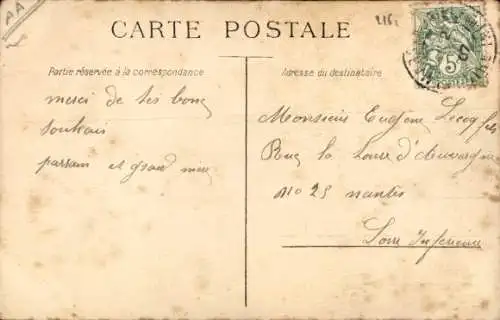 AA
CARTE POSTALE
218
Partie réservée à la correspondance
Adresse du destinataire
merci de tes bons
souhais
parrain et grand mere
Monsieur Eugène Lecoq fils
Rue la Tour d'Auvergne
No 25 nantes
Loire Inférieure
5